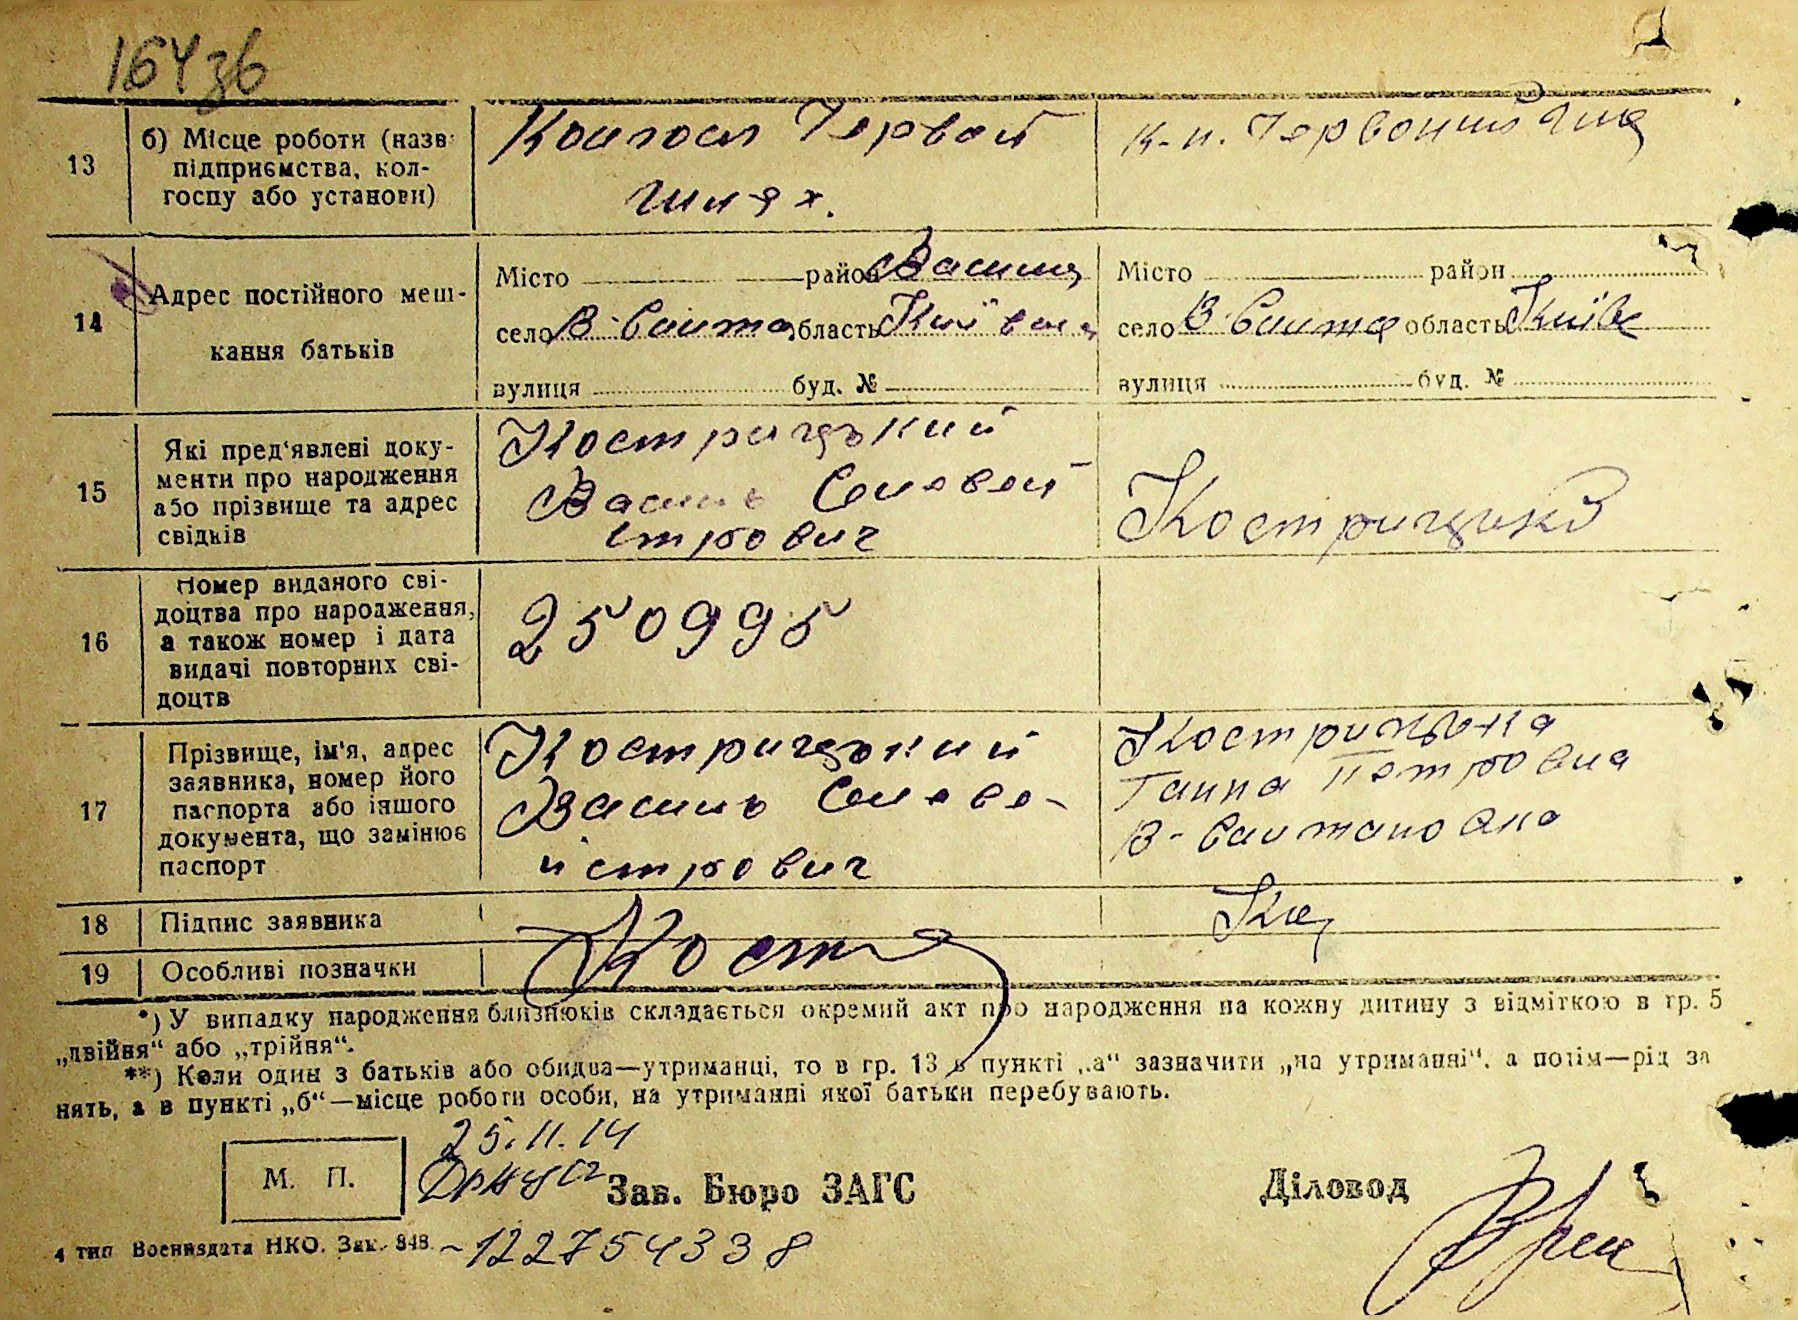 164зв
13 б) Місце роботи (назв підприємства, колгоспу або установи)
Колгосп Червой
шлях.
к-п. Червоний шля
14 Адрес постійного мешкання батьків
Місто район Васильк
село В-Солта область Київська
вулиця буд. №
Місто район
село В-Солта область Київс
вулиця буд. №
15 Які пред'явлені документи про народження або прізвище та адрес свідків
Кострицький
Василь Селивей
стрович
16 Номер виданого свідоцтва про народження, а також номер і дата видачі повторних свідоцтв
250995
17 Прізвище, ім'я, адрес заявника, номер його паспорта або іншого документа, що замінює паспорт
Кострицький
Василь Селеве-
йстрович
Кострицька
Ганна Петровна
18 Підпис заявника
Кост
19 Особливі позначки
*) У випадку народження близнюків складається окремий акт про народження на кожну дитину з відміткою в гр. 5
„двійня“ або „трійня“.
**) Коли один з батьків або обидва—утриманці, то в гр. 13 в пункті „а“ зазначити „на утриманні“, а потім—рід за
нять, а в пункті „б“—місце роботи особи, на утриманні якої батьки перебувають.
25.11.14
М. П.
Зав. Бюро ЗАГС
Діловод
4 тип Воениздата НКО. Зак. 848.
-122754338